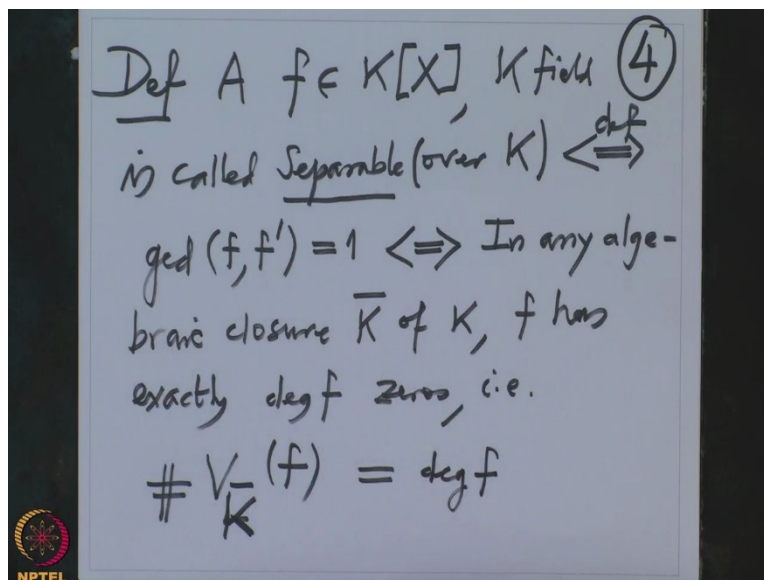 Def A f ∈ K[X], K field ④
is called Separable (over K) <=def=>
gcd (f, f') = 1 <=> In any alge-
braic closure K̄ of K, f has
exactly deg f zeros, i.e.
# V_K̄ (f) = deg f
NPTEL